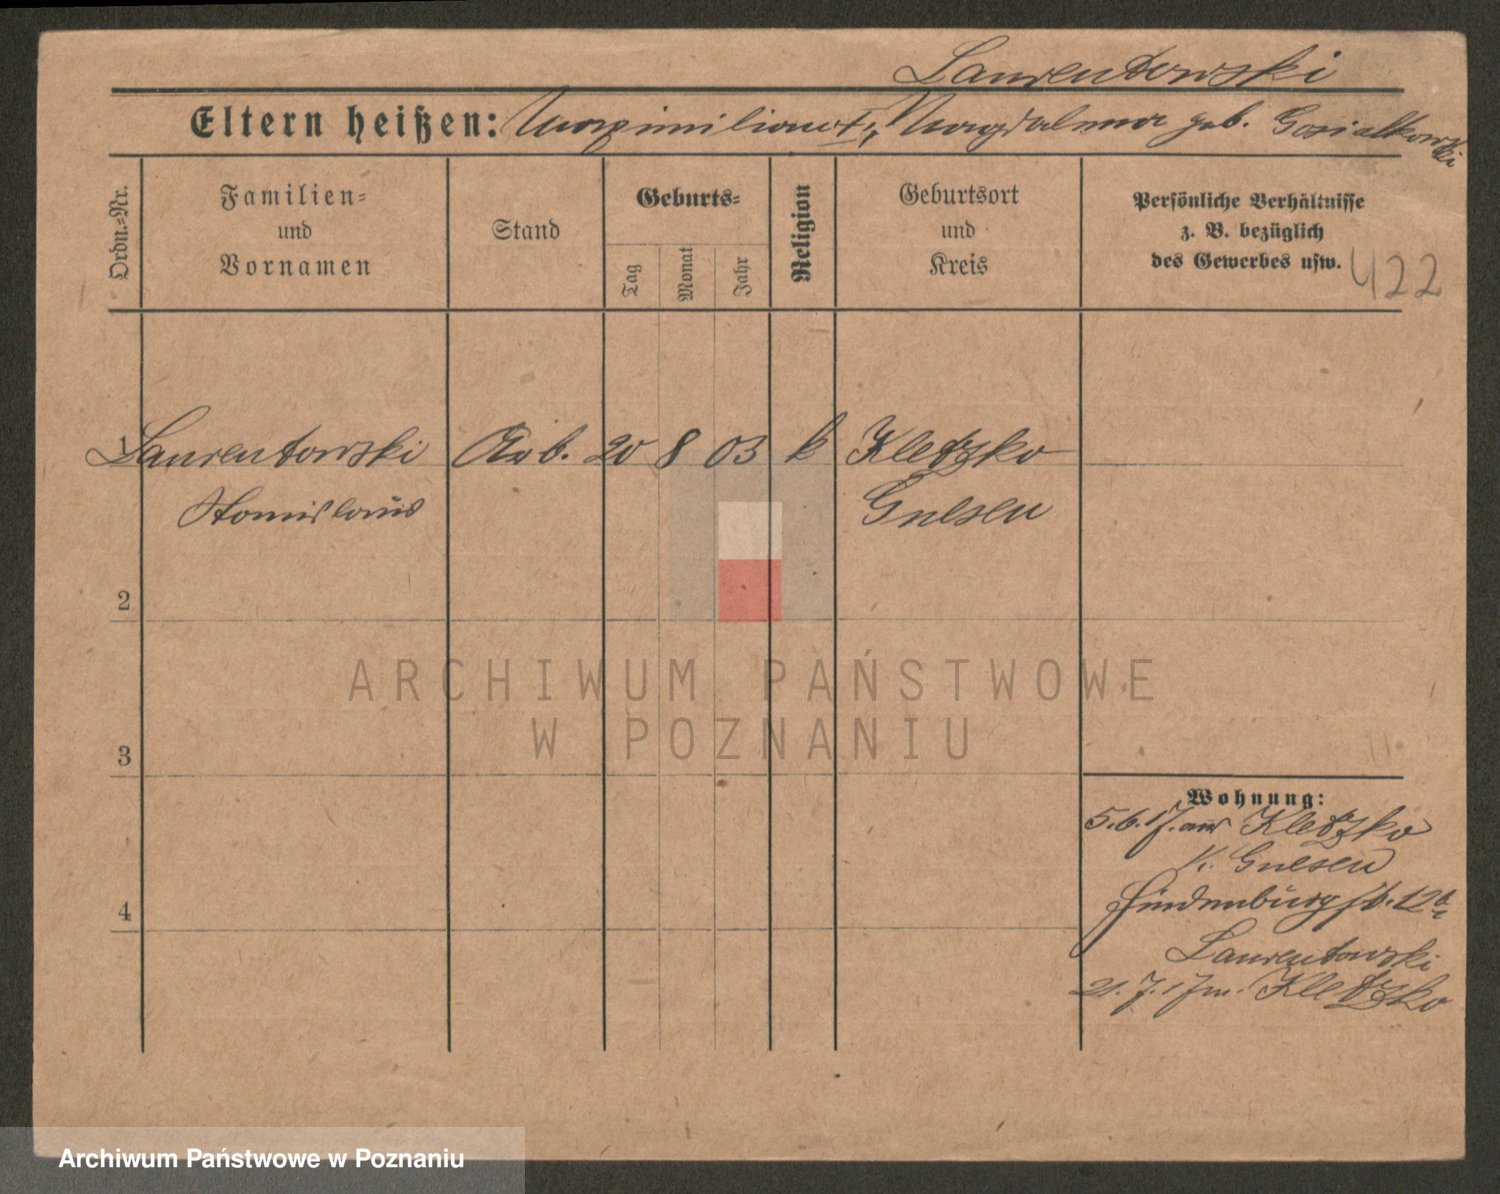 Laurentowski
Eltern heißen: Maximilian u. Magdalena geb. Gosialkowski
Ordn.-Nr.
Familien-
und
Vornamen
Stand
Geburts-
Tag
Monat
Jahr
Religion
Geburtsort
und
Kreis
Persönliche Verhältnisse
z. B. bezüglich
des Gewerbes usw.
422
1 Laurentowski Arb. 20 8 03 k Kletzko
Stanislaus Gnesen
2
3
4
Wohnung:
5.6.17. aus Kletzko
K. Gnesen
Hindenburgst. 12
Laurentowski
21.7.17 n. Kletzko
ARCHIWUM PAŃSTWOWE
W POZNANIU
Archiwum Państwowe w Poznaniu